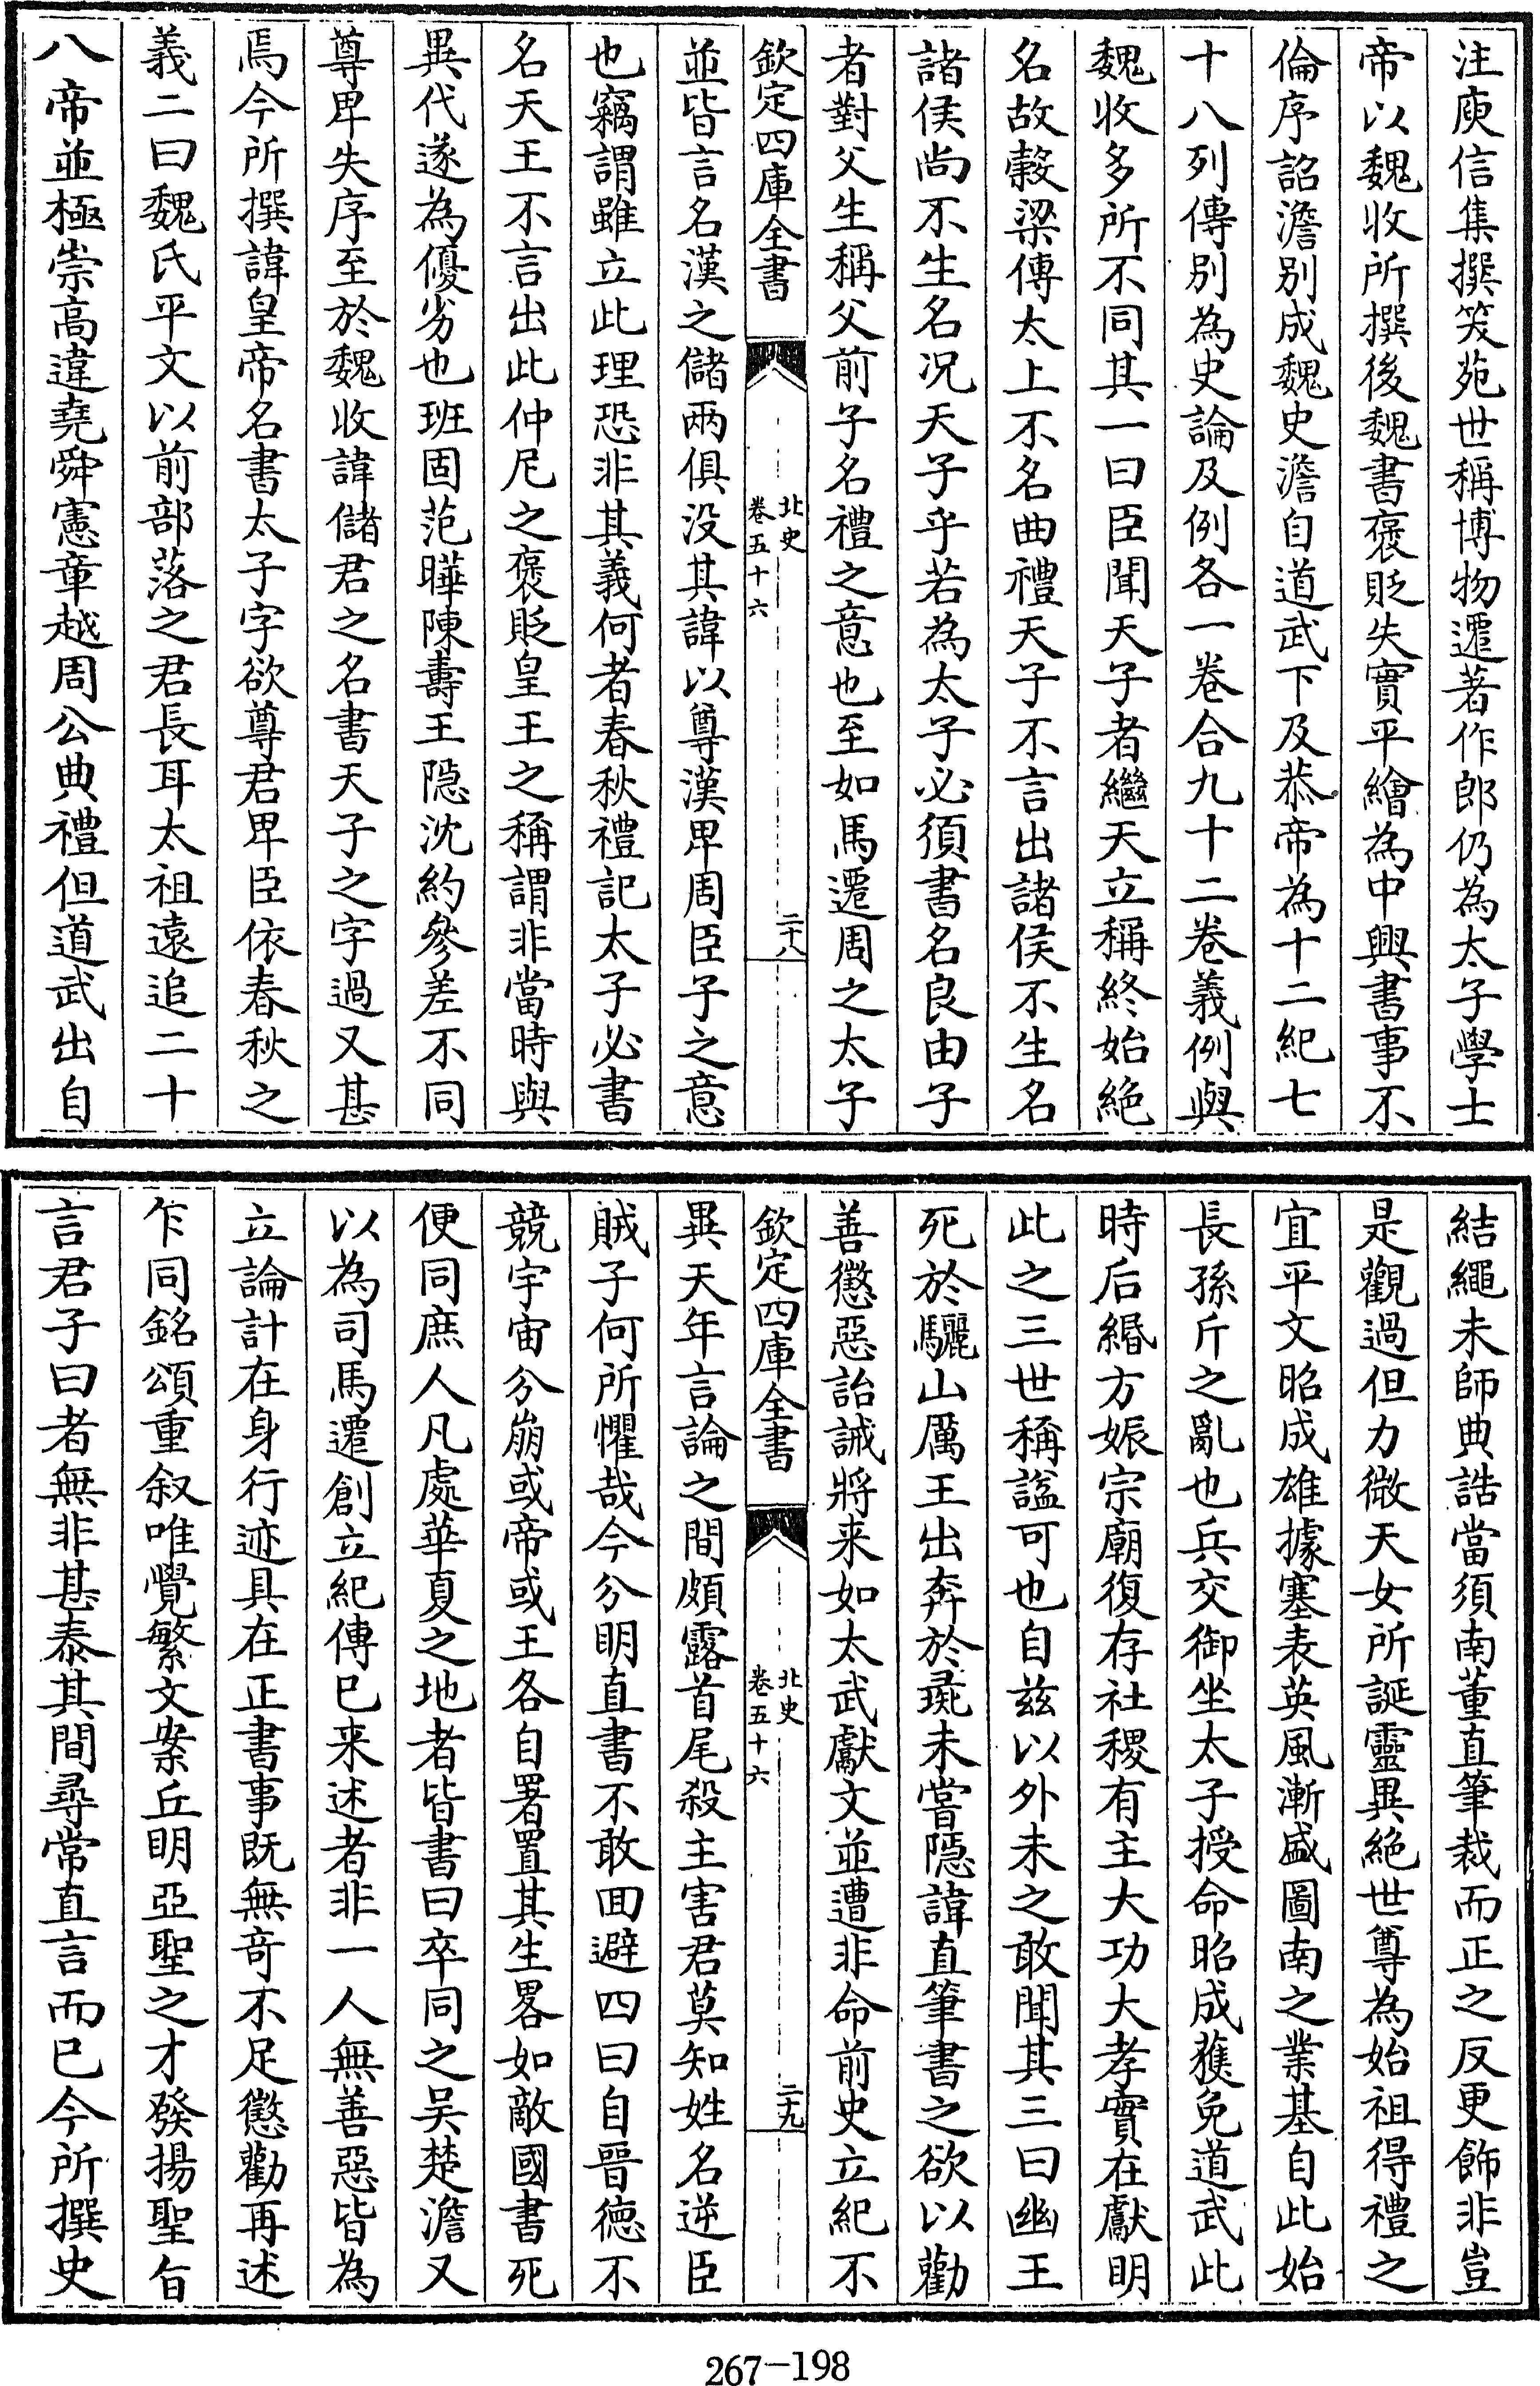 注庾信集撰笑苑世稱博物遷著作郎仍為太子學士
帝以魏收所撰後魏書褒貶失實平繪為中興書事不
倫序詔澹别成魏史澹自道武下及恭帝為十二紀七
十八列傳别為史論及例各一卷合九十二卷義例與
魏收多所不同其一曰臣聞天子者繼天立稱終始絶
名故縠梁傳太上不名曲禮天子不言出諸侯不生名
諸侯尚不生名况天子乎若為太子必須書名良由子
者對父生稱父前子名禮之意也至如馬遷周之太子
欽定四庫全書
北史
卷五十六
二十八
並皆言名漢之儲兩俱没其諱以尊漢卑周臣子之意
也竊謂雖立此理恐非其義何者春秋禮記太子必書
名天王不言出此仲尼之褒貶皇王之稱謂非當時與
異代遂為優劣也班固范曄陳壽王隠沈約參差不同
尊卑失序至於魏收諱儲君之名書天子之字過又甚
焉今所撰諱皇帝名書太子字欲尊君卑臣依春秋之
義二曰魏氏平文以前部落之君長耳太祖遠追二十
八帝並極崇高違堯舜憲章越周公典禮但道武出自
結繩未師典誥當須南董直筆裁而正之反更飾非豈
是觀過但力微天女所誕靈異絶世尊為始祖得禮之
宜平文昭成雄據塞表英風漸盛圖南之業基自此始
長孫斤之亂也兵交御坐太子授命昭成獲免道武此
時后緡方娠宗廟復存社稷有主大功大孝實在獻明
此之三世稱謚可也自兹以外未之敢聞其三曰幽王
死於驪山厲王出奔於彘未嘗隠諱直筆書之欲以勸
善懲惡詒誡將来如太武獻文並遭非命前史立紀不
欽定四庫全書
北史
卷五十六
二十九
異天年言論之間頗露首尾殺主害君莫知姓名逆臣
賊子何所懼哉今分明直書不敢囬避四曰自晉徳不
競宇宙分崩或帝或王各自署置其生畧如敵國書死
便同庶人凡處華夏之地者皆書曰卒同之吴楚澹又
以為司馬遷創立紀傳已来述者非一人無善惡皆為
立論計在身行迹具在正書事既無竒不足懲勸再述
乍同銘頌重叙唯覺繁文案丘明亞聖之才發揚聖旨
言君子曰者無非甚泰其間尋常直言而已今所撰史
267-198